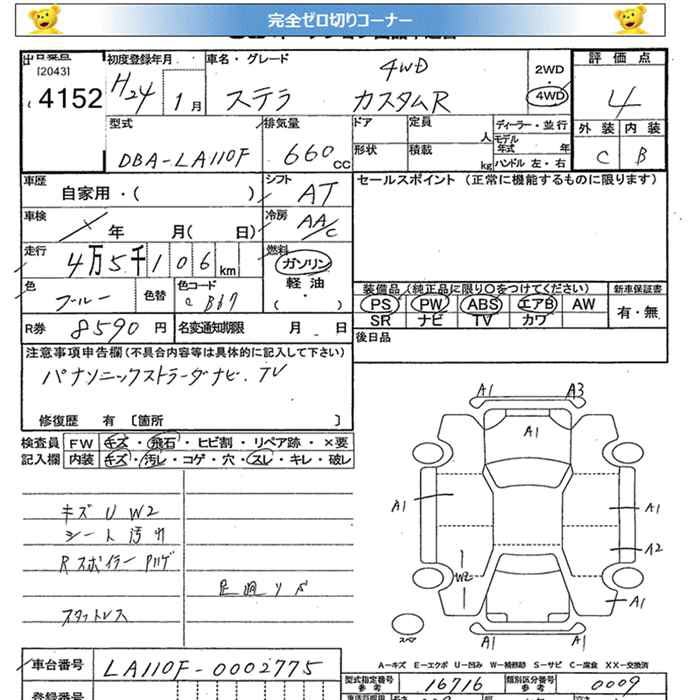 完全ゼロ切りコーナー
[2043]
4152
初度登録年月
H24 1月
車名・グレード
4WD
ステラ カスタムR
2WD
・
4WD
評価点
4
外装 内装
C B
型式
DBA-LA110F
排気量
660 CC
ドア 定員 人
形状 積載 kg
ディーラー・並行
モデル年式 年
ハンドル 左・右
車歴
自家用・( )
シフト
AT
セールスポイント (正常に機能するものに限ります)
車検
年 月( 日)
冷房
AA/C
走行
4万5千106km
燃料
ガソリン
軽油
( ・ )
色
ブルー
色替
色コード
B67
装備品 (純正品に限り〇をつけてください)
PS PW ABS エアB AW
SR ナビ TV カワ
新車保証書
有・無
R券 8590 円
名変通知期限 月 日
後日品
注意事項申告欄(不具合内容等は具体的に記入して下さい)
パナソニックストラーダナビ. TV
修復歴 有 〔箇所 〕
検査員 FW キズ・飛石・ヒビ割・リペア跡・×要
記入欄 内装 キズ・汚レ・コゲ・穴・スレ・キレ・破レ
キズ U W2
シート汚れ
Rスポイラー ハゲ
足廻りサビ
スタットレス
A1 A3
A1
A1
A1
A2
W2
A1
スペア
A1 A1
A-キズ E-エクボ U-凹み W-補修跡 S-サビ C-腐食 XX-交換済
車台番号
LA110F-0002775
型式指定番号
参考
16716
類別区分番号
参考
0009
登録番号